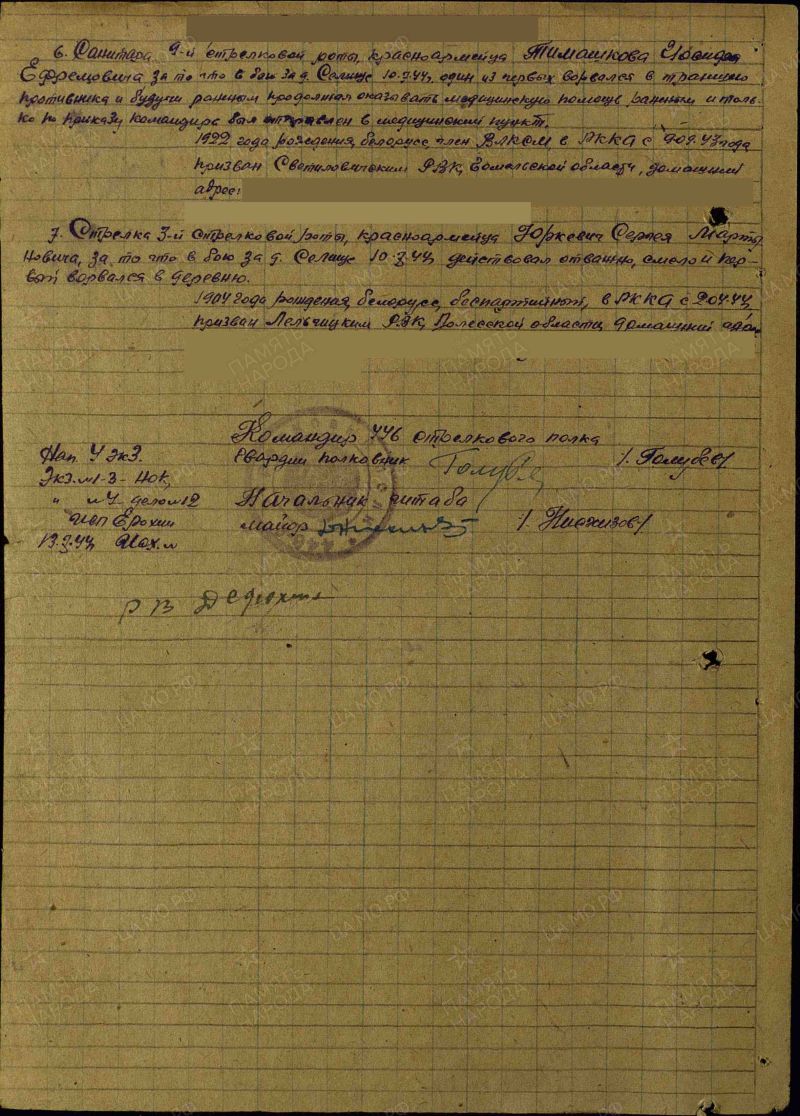 6. Санитара 9-й стрелковой роты, красноармейца Тимашкова
Ефремовича за то что в бою за д. Селище 10.7.44, один из первых ворвался в траншею
противника и будучи раненым продолжал оказывать медицинскую помощь раненым и толь-
ко по приказу командира был отправлен в медицинский пункт.
1922 года рождения, белорусс, член ВЛКСМ, в РККА с года
призван Светиловичским РВК, Гомельской области, домашний
адрес:
7. Стрелка 3-й стрелковой роты, красноармейца Юркевич Сергея Марты
новича, за то что в бою за д. Селище 10.7.44, действовал отважно, смело и пер-
вый ворвался в деревню.
1904 года рождения, белорусс, беспартийный, в РККА с
призван Лельчицким РВК, Полесской области, домашний
Командир 776 стрелкового полка
Нап. 4 экз. Гвардии полковник /Голубев/
Экз. №1-3-
" №4 дело №2 Начальник штаба
Исп Ерохин майор
Исх. №
ПАМЯТЬ НАРОДА
ЦА МО.РФ